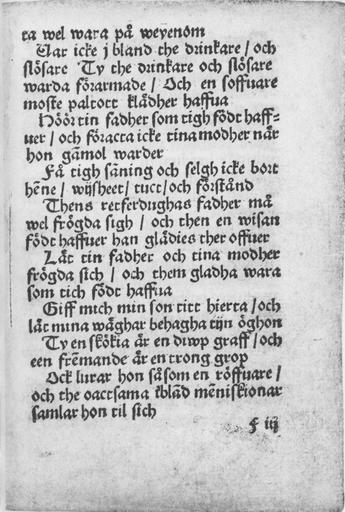 ta wel wara på weyenom
Uar icke j bland the drinkare / och
slösare Ty the drinkare och slösare
warda förarmade / Och en soffuare
moste paltott klädher haffua
Höör tin fadher som tigh födt haff⸗
uer / och föracta icke tina modher när
hon gāmol warder
Få tigh sāning och selgh icke bort
hēne / wijsheet / tuct / och förstånd
Thens retferdughas fadher må
wel frögda sigh / och then en wisan
födt haffuer han glädies ther offuer
Lät tin fadher och tina modher
frögda sich / och them gladha wara
som tich födt haffua
Giff mich min son titt hierta / och
lät mina wäghar behagha tijn öghon
Ty en skökia är en diwp graff / och
een frēmande är en trong grop
Ock lurar hon såsom en röffuare /
och the oactsama ibläd mēniskionar
samlar hon til sich
ꞩ iij